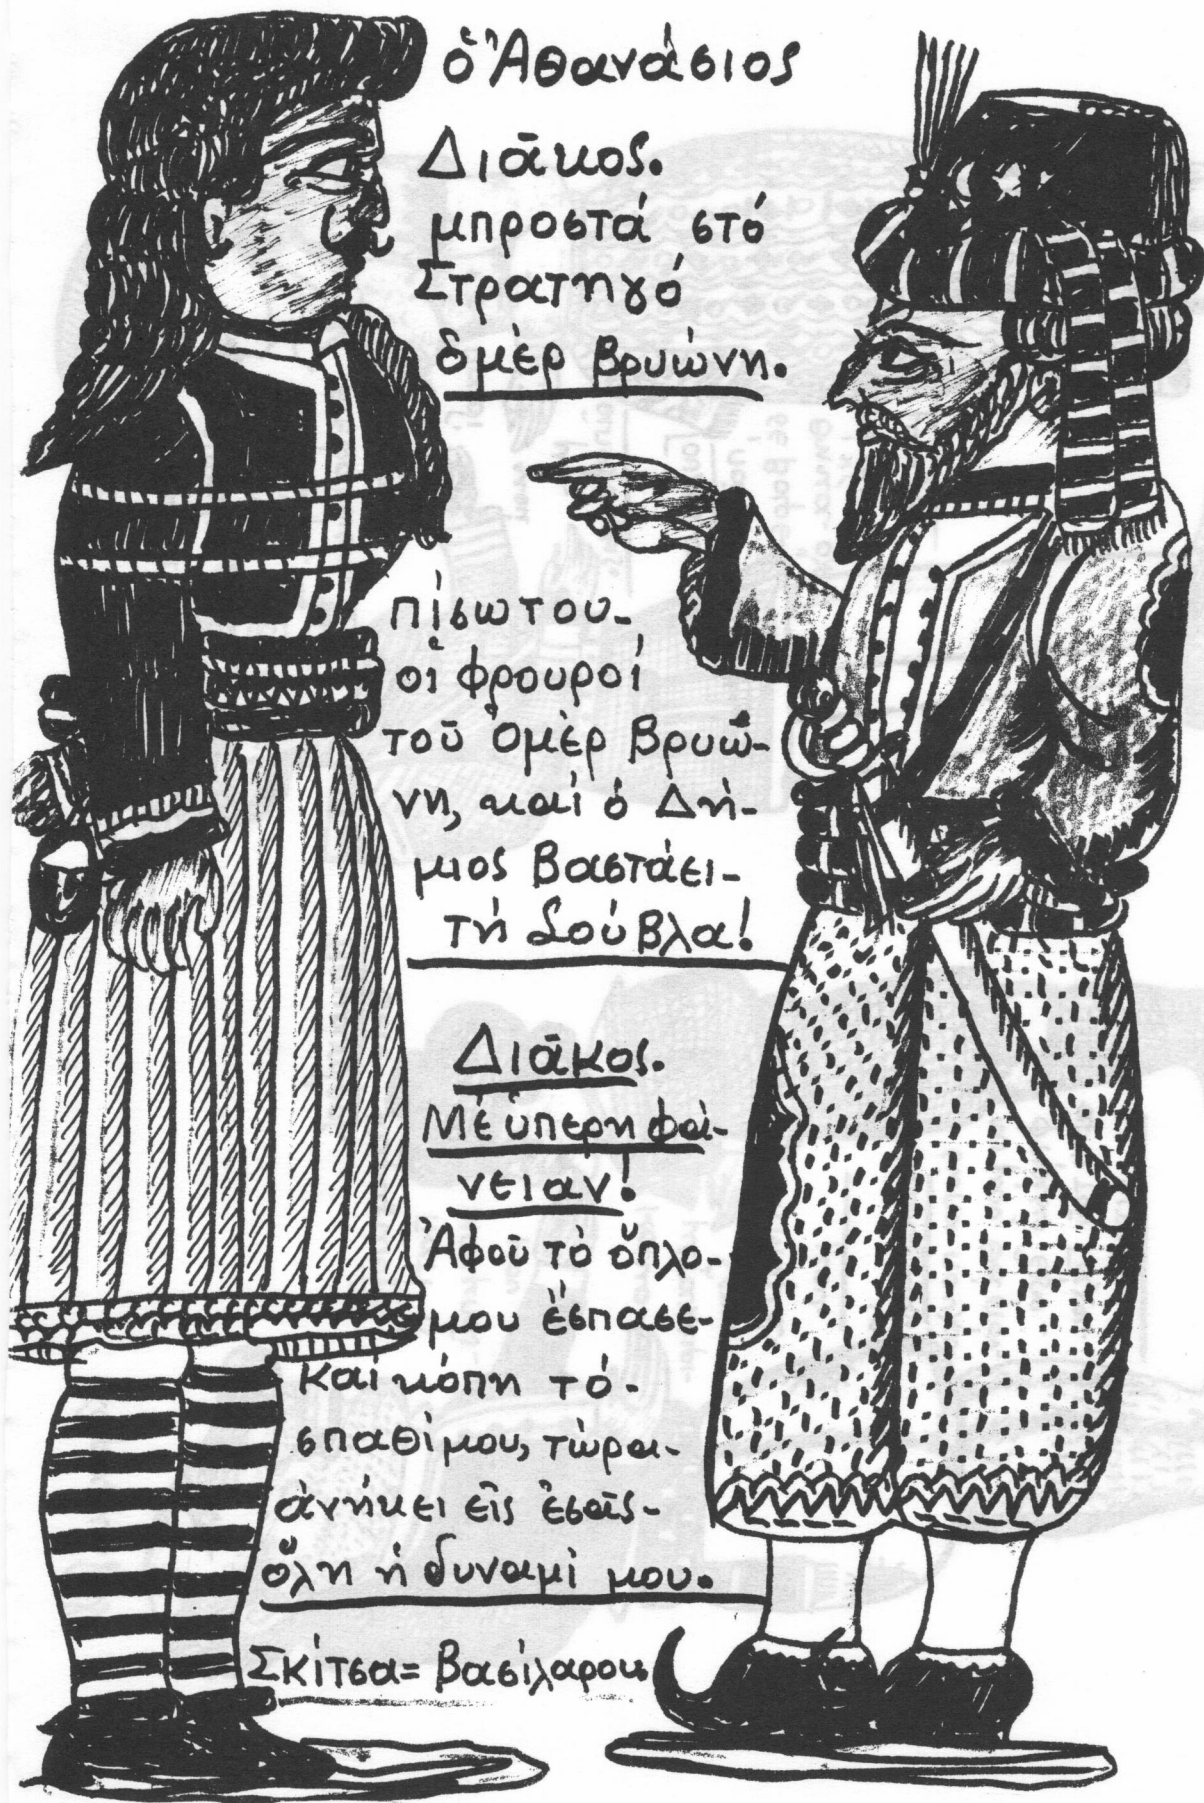 ὁ Ἀθανάσιος
Διᾶκος.
μπροστά στό
Στρατηγό
ὁμὲρ βρυώνη.
πίσω του-
οἱ φρουροί
τοῦ ὁμὲρ βρυώ-
νη, καί ὁ Δή-
μιος βαστάει-
τή Σούβλα!
Διᾶκος.
Μέ ὑπερηφά-
νειαν!
Ἀφοῦ τὸ ὅπλο-
μου ἔσπασε-
καί κόπη τό-
σπαθί μου, τώρα-
ἀνήκει εἰς ἐσᾶς-
ὅλη ἡ δυναμί μου.
Σκίτσα= Βασίλαρος